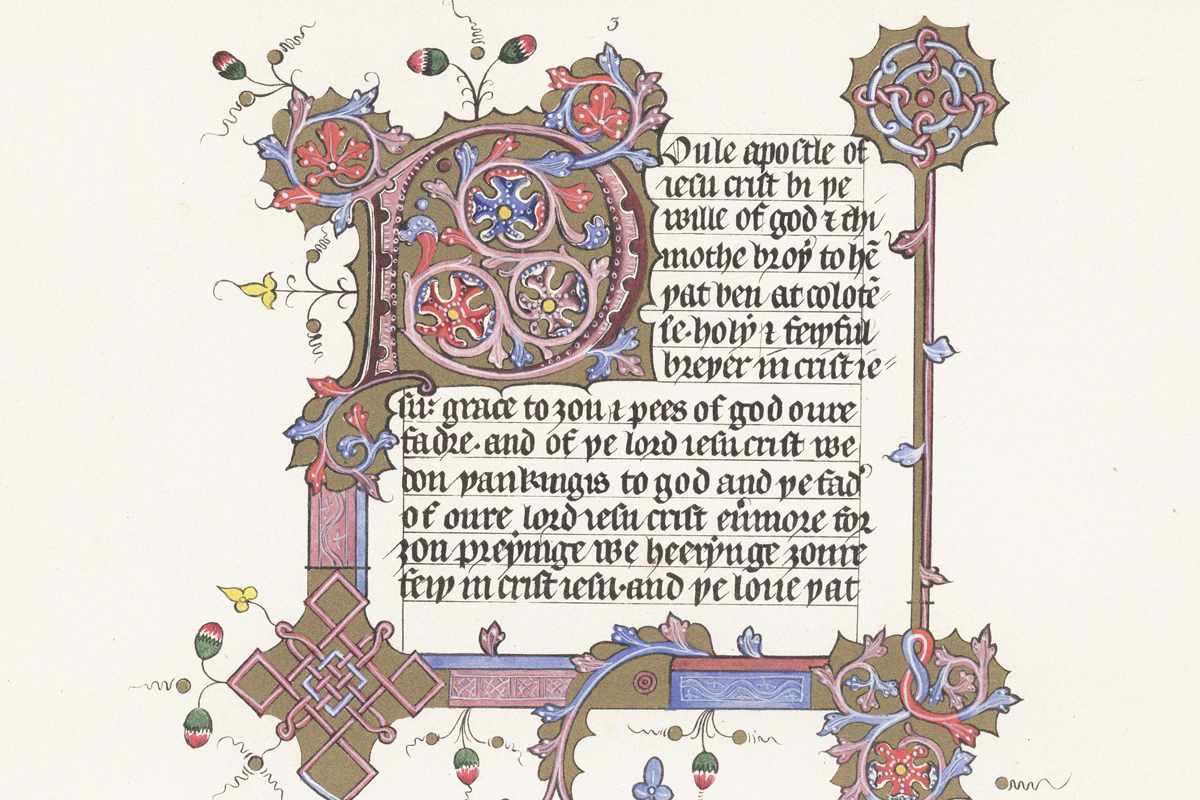 3
Poule apostle of
iesu crist bi þe
wille of god ⁊ thi
mothe broþ to hē
þat ben at colocē〃
se·holy ⁊ feiþful
breþer in crist ie〃
su: grace to ȝou ⁊ pees of god oure
fadre·and of þe lord iesu crist we
don þankingis to god and þe fad᾽
of oure lord iesu crist eūmore for
ȝou preyinge we heerynge ȝoure
feiþ in crist iesu·and þe loue þat